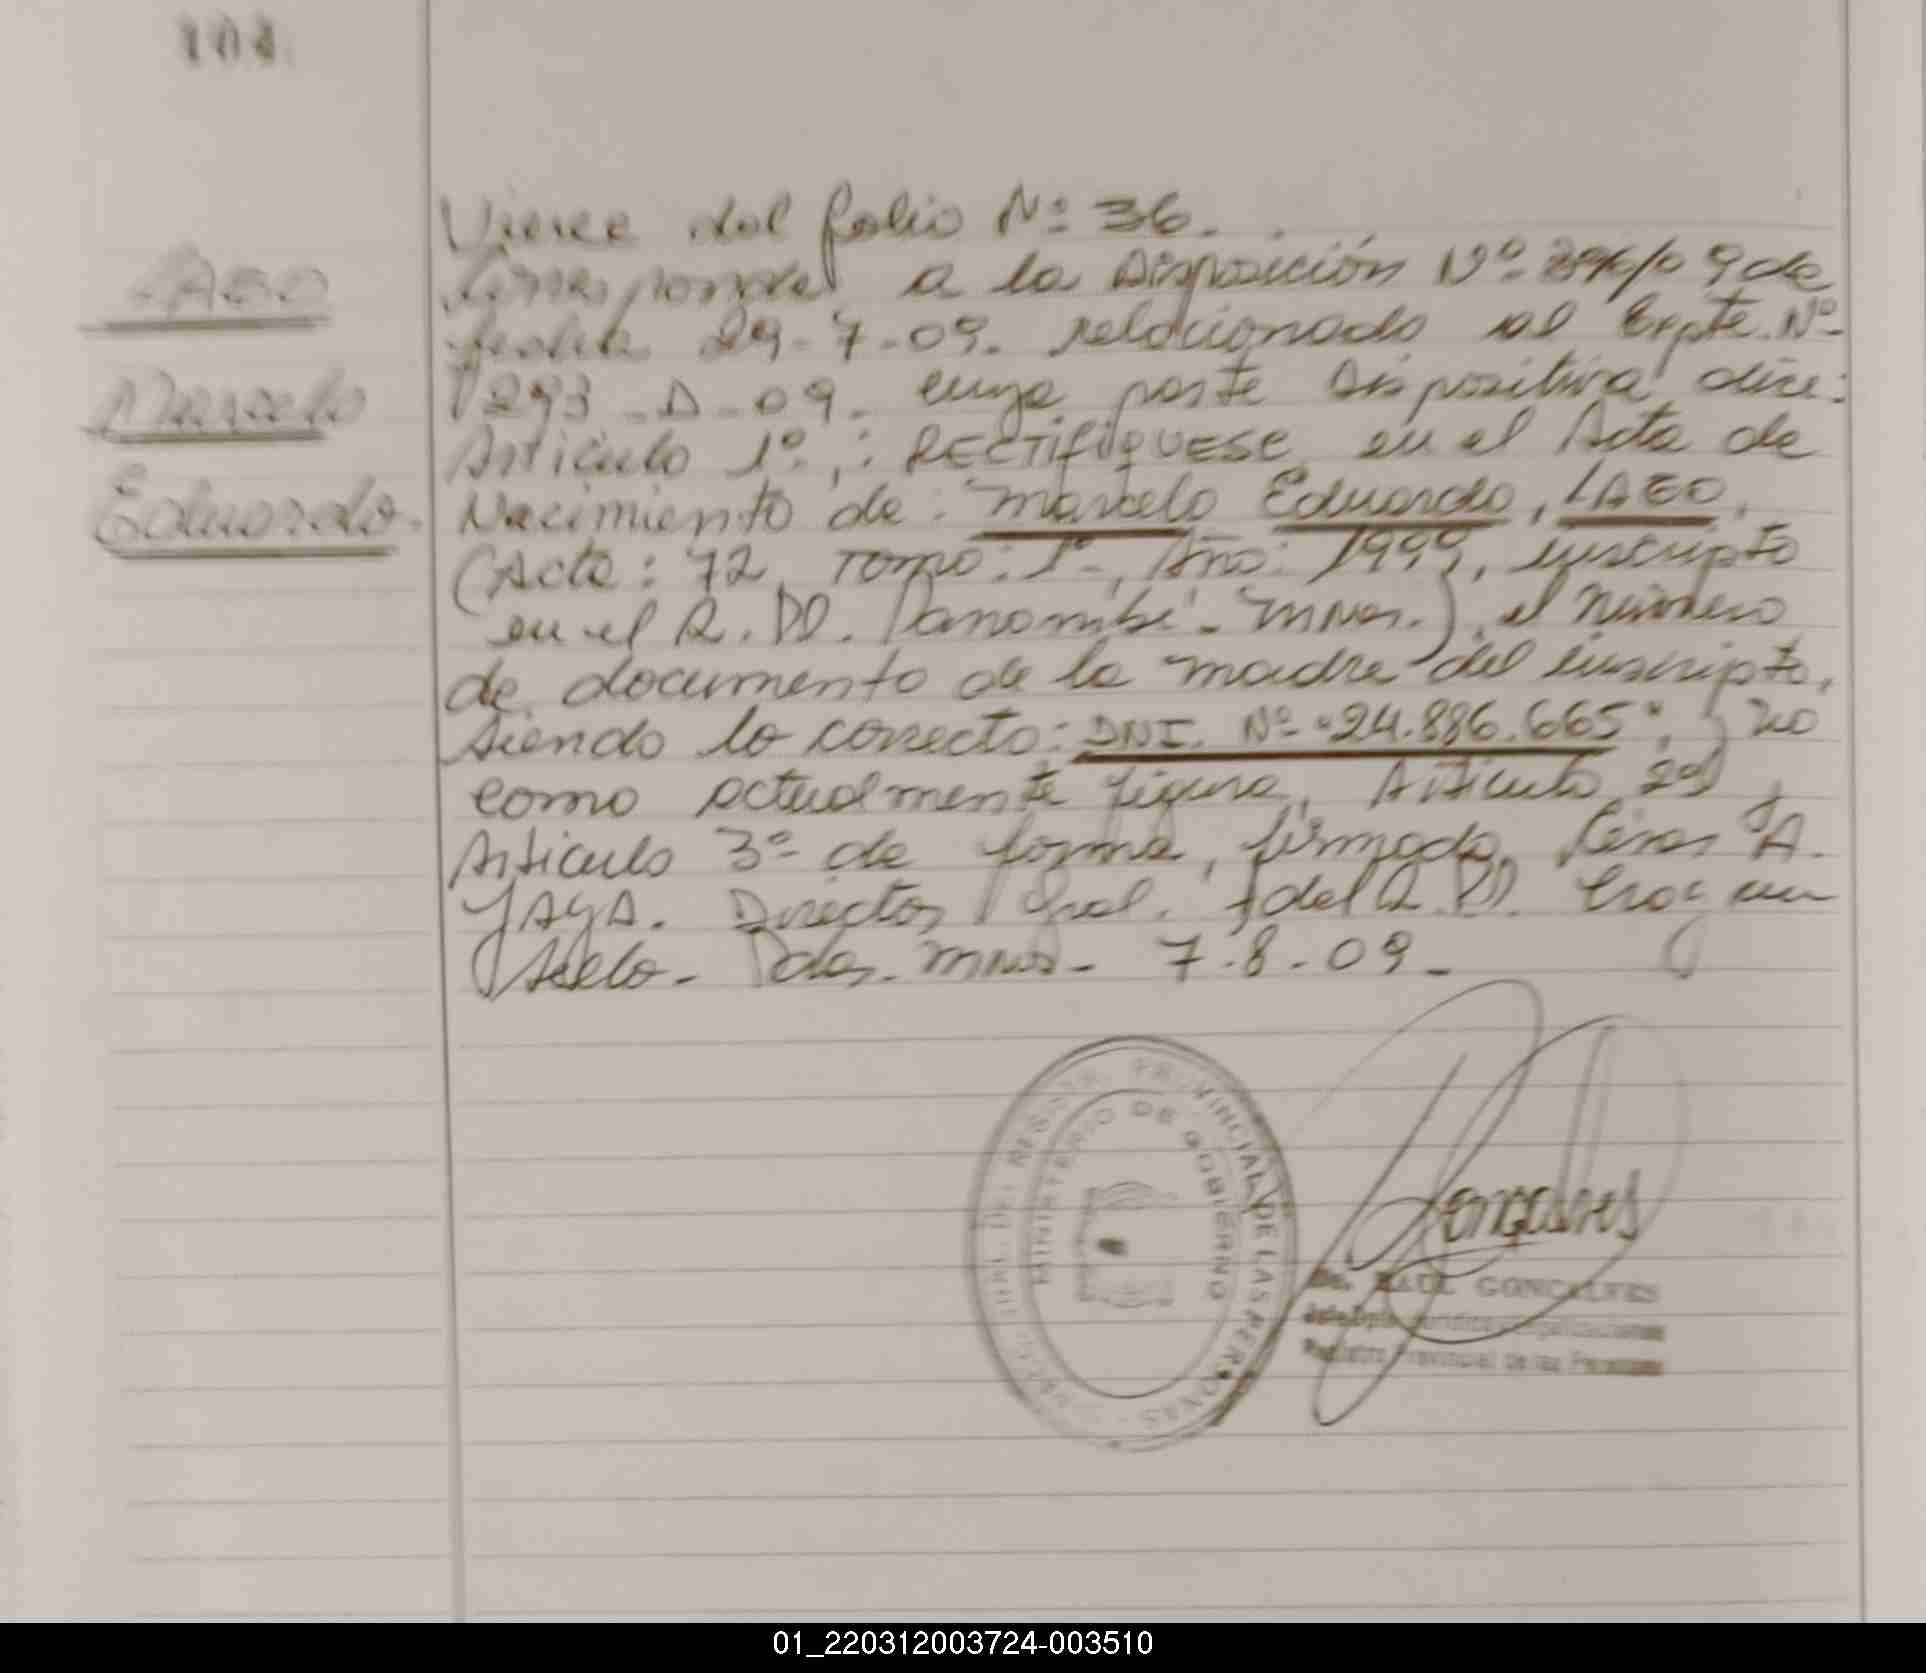 101
Viene del folio Nº 36.
LAEO
Marcelo
Eduardo.
Corresponde a la Disposición Nº 896/09 de
fecha 29-7-09. relacionado al Expte. Nº
1293-D-09. cuya parte dispositiva dice:
Articulo 1º.,: RECTIFIQUESE en el Acta de
Nacimiento de: Marcelo Eduardo, LAEO,
(Acta: 72, Tomo: 1º, Año: 1999, inscripto
en el R.PP. Panambí - Mnes.), el número
de documento de la madre del inscripto,
siendo lo correcto: DNI. Nº "24.886.665", y no
como actualmente figura, Articulo 2º y
Articulo 3º de forma, firmado
Director Gral. del R.PP. Hay un
Sello - Pdas. Mnes - 7-8-09 -
REGISTRO PROVINCIAL DE LAS PERSONAS
MINISTERIO DE GOBIERNO
Goncalves
RAUL GONCALVES
Registro Provincial de las Personas
01_220312003724-003510